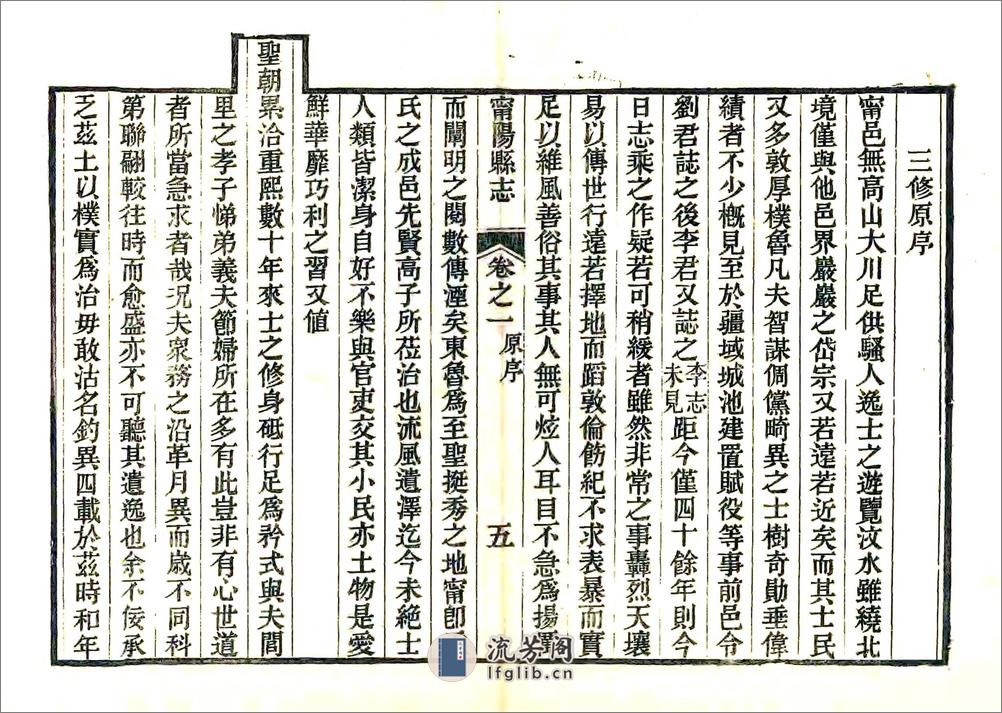 三修原序
甯邑無高山大川足供騷人逸士之遊覽汶水雖繞北
境僅與他邑界巖巖之岱宗又若遠若近矣而其士民
又多敦厚樸魯凡夫智謀倜儻畸異之士樹奇勛垂偉
績者不少概見至於疆域城池建置賦役等事前邑令
劉君誌之後李君又誌之李志未見距今僅四十餘年則今
日志乘之作疑若可稍緩者雖然非常之事轟烈天壤
易以傳世行遠若擇地而蹈敦倫飭紀不求表暴而實
足以維風善俗其事其人無可炫人耳目不急爲揚
甯陽縣志 卷之一 原序 五
而闡明之閱數傳湮矣東魯爲至聖挺秀之地甯卽
氏之成邑先賢高子所莅治也流風遺澤迄今未絕士
人類皆潔身自好不樂與官吏交其小民亦土物是愛
鮮華靡巧利之習又値
聖朝累洽重熙數十年來士之修身砥行足爲矜式與夫閭
里之孝子悌弟義夫節婦所在多有此豈非有心世道
者所當急求者哉况夫衆務之沿革月異而歲不同科
第聯翩較往時而愈盛亦不可聽其遺逸也余不佞承
乏茲土以樸實爲治毋敢沽名釣異四載於茲時和年
流芳阁
lfglib.cn